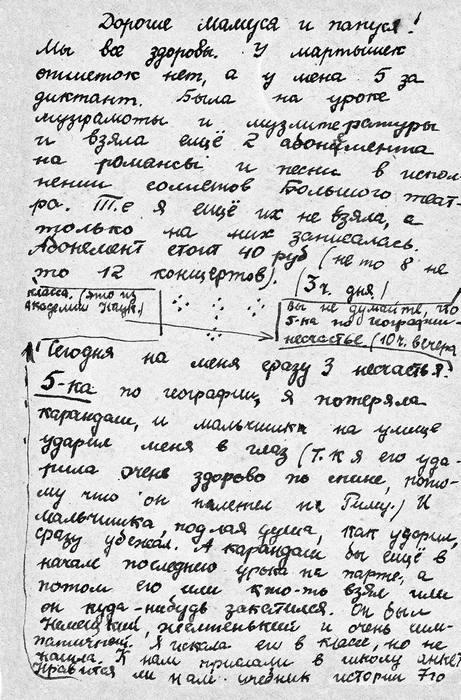 Дорогие Мамуся и папуся!
Мы все здоровы. У мартышек
отметок нет, а у меня 5 за
диктант. Была на уроке
музграмоты и музлитературы
и взяла ещё 2 абонемента
на романсы и песни в испол-
нении солистов Большого теат-
ра. Т.е я ещё их не взяла, а
только на них записалась.
Абонемент стоит 40 руб (не то 8 не
то 12 концертов). (3 ч. дня!
класса. (это из
Академии Наук.)
Вы не думайте, что
5-ка по географии-
несчастье. (10 ч. вечера
Сегодня на меня сразу 3 несчастья.
5-ка по географии, я потеряла
карандаш, и мальчишка на улице
ударил меня в глаз (т.к я его уда-
рила очень здорово по спине, пото-
му что он налетел на Риму.) И
мальчишка, подлая душа, как ударил,
сразу убежал. А карандаш был ещё в
начале последнего урока на парте, а
потом его или кто-то взял или
он куда-нибудь закатился. Он был
немецкий, жёлтенький и очень сим-
патичный. Я искала его в классе, но не
нашла. К нам прислали в школу анкет
Нравится ли нам учебник истории 7го